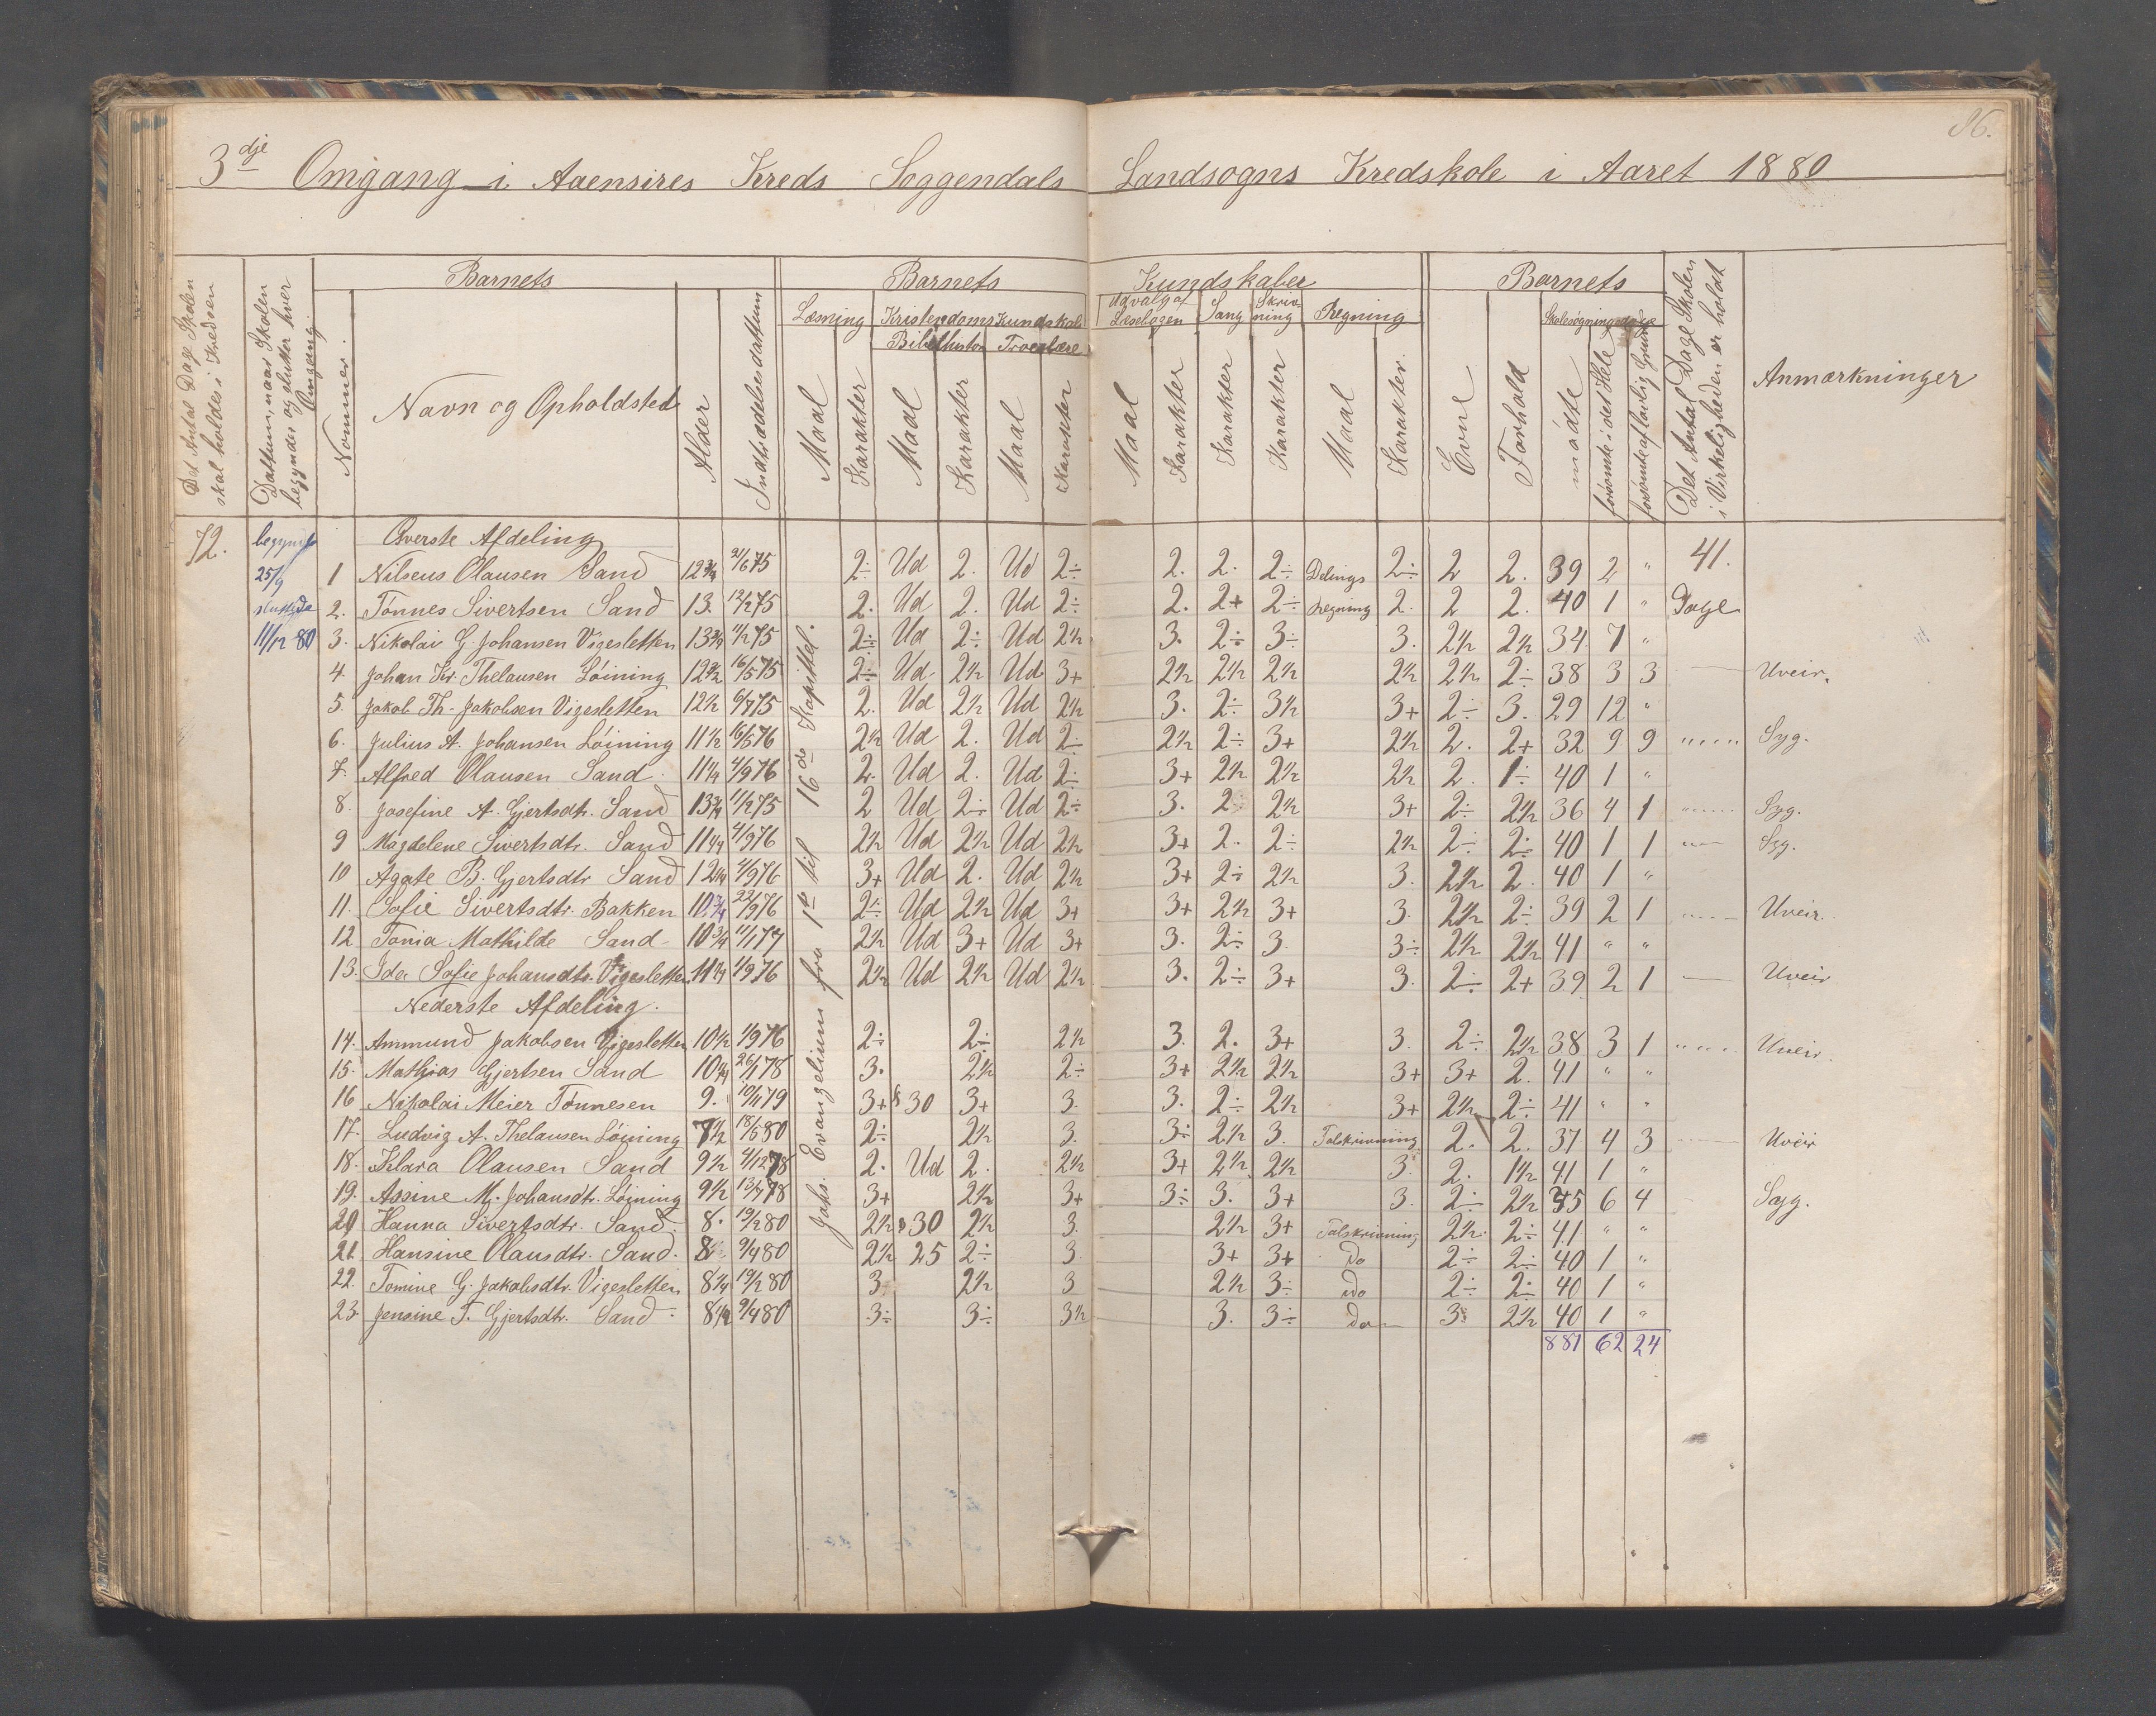 86.
3dje Omgang i Aaensires Kreds Soggendals Landsogns Kredskole i Aaret 1880
Det Antal Dage Skolen skal holdes i Kredsen
Dattum, naar Skolen begynder og slutter hver Omgang.
Barnets
Nommer.
Navn og Opholdsted
Alder
Indtrædelsesdattum
Barnets Kundskaber
Læsning
Kristendoms Kundskab
Bibelhistor Troeslære
Udvalg af Læsebogen
Sang
Skrivning
Regning
Maal Karakter Maal Karakter Maal Karakter Maal Karakter Karakter Karakter Maal Karakter.
Barnets
Evne
Forhold
Skolesøgningsdage
mødte
forsømte i det Hele
forsømte af lovlig Grund
Det Antal Dage Skolen i Virkeligheden er holdt
Anmærkninger
72.
25/9
11/12 80
41.
Dage
Jahs. Evangelium fra 1te til 16de Kapittel.
Øverste Afdeling
1 Nilseus Olausen Sand 12 3/4 21/6 75 2÷ Ud 2. Ud 2÷ 2. 2. 2÷ Delings 2÷ 2 2. 39 2 "
2. Tønnes Sivertsen Sand 13. 12/2 75 2. Ud 2. Ud 2÷ 2. 2+ 2÷ regning 2. 2 2. 40 1 "
3. Nikolai G. Johansen Vigesletten 13 3/4 11/2 75 2÷ Ud 2÷ Ud 2½ 3. 2÷ 3÷ 3. 2½ 2½ 34. 7 "
4. Johan Kr. Thelausen Løining 12½ 16/5 75 2÷ Ud 2½ Ud 3+ 2½ 2½ 2½ 2½ 2½ 2÷ 38 3 3 Uveir.
5. Jakob Th. Jakobsen Vigesletten 12½ 6/7 75 2. Ud 2½ Ud 2½ 3. 2÷ 3½ 3+ 2÷ 3. 29 12 "
6. Julius A. Johansen Løining 11½ 16/5 76 2½ Ud 2. Ud 2÷ 2½ 2÷ 3+ 2½ 2. 2+ 32 9 9 " " " " Syg.
7. Alfred Olausen Sand 11¼ 4/9 76 2. Ud 2. Ud 2÷ 3+ 2½ 2½ 2½ 2. 1÷ 40 1 "
8. Josefine A. Gjertsdtr. Sand 13 3/4 11/2 75 2 Ud 2÷ Ud 2÷ 3. 2 2½ 3+ 2÷ 2½ 36 4 1 Syg.
9 Magdelene Sivertsdtr. Sand 11¼ 4/9 76 2½ Ud 2½ Ud 2½ 3+ 2. 2÷ 2½ 2÷ 2÷ 40 1 1 Syg.
10 Agate B. Gjertsdtr Sand 12¼ 4/9 76 3+ Ud 2. Ud 2½ 3+ 2÷ 2½ 3. 2½ 2. 40 1 "
11. Sofie Sivertsdtr. Bakken 10 3/4 22/9 76 2÷ Ud 2½ Ud 3+ 3+ 2½ 3+ 3. 2½ 2÷ 39 2 1 Uveir.
12 Tonia Mathilde Sand 10 3/4 11/1 77 2½ Ud 3+ Ud 3+ 3. 2÷ 3. 3÷ 2½ 2½ 41 " "
13. Ida Sofie Johansdtr. Vigesletten 11¼ 4/9 76 2½ Ud 2½ Ud 2½ 3. 2÷ 3+ 3. 2÷ 2+ 39 2 1 Uveir
Nederste Afdeling.
14. Ammund Jakobsen Vigesletten 10½ 1/9 76 2÷ 2÷ 2½ 3. 2. 3+ 3. 2÷ 2½ 38 3 1 " " " Uveir.
15. Mathias Gjertsen Sand 10¼ 26/1 78 3. 2½ 2÷ 3+ 2½ 2½ 3+ 3+ 2. 41 " "
16 Nikolai Meier Tønnesen 9. 10/1 79 3+ 30 3+ 3. 3. 2÷ 2½ 3+ 2½ 2÷ 41 " "
17. Ludvig A. Thelausen Løining 7½ 18/5 80 2÷ 2½ 3. 3÷ 2½ 3. Talskrivning 2. 2. 37 4 3 Uveir
18. Klara Olausen Sand 9½ 4/12 78 2. Ud 2. 2½ 3+ 2½ 2½ 3. 2. 1½ 41 1 "
19. Assine M. Johansdtr. Løining 9½ 13/7 78 3+ 2½ 3+ 3÷ 3. 3+ 3. 2÷ 2½ 35 6 4 Syg.
20 Hanna Sivertsdtr. Sand 8. 19/2 80 2½ 30 2½ 3. 2½ 3+ Talskrivning 2½ 2÷ 41 " "
21. Hansine Olausdtr. Sand. 8 9/4 80 2½ 25 2÷ 3. 3+ 3+ do 2÷ 2÷ 40 1 "
22. Tomine G. Jakobsdtr. Vigesletten 8¼ 19/2 80 3 2½ 3 2½ 3÷ do 2÷ 2÷ 40 1 "
23. Jensine T. Gjertsdtr. Sand 8½ 9/4 80 3÷ 3÷ 3½ 3. 3÷ do 3. 2½ 40 1 "
881 62 24